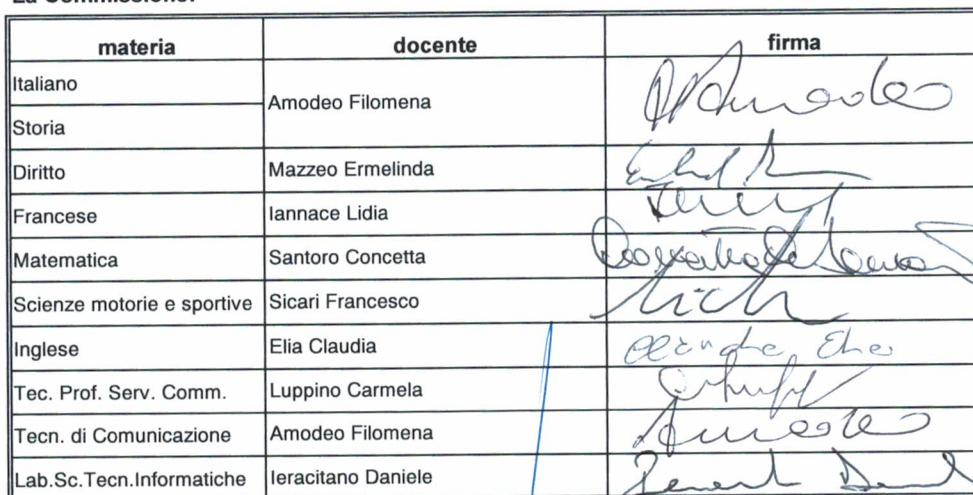 La Commissione:
materia docente firma
Italiano
Amodeo Filomena Amodeo
Storia
Diritto Mazzeo Ermelinda
Francese Iannace Lidia
Matematica Santoro Concetta
Scienze motorie e sportive Sicari Francesco
Inglese Elia Claudia Claudia Elia
Tec. Prof. Serv. Comm. Luppino Carmela
Tecn. di Comunicazione Amodeo Filomena Amodeo
Lab.Sc.Tecn.Informatiche Ieracitano Daniele